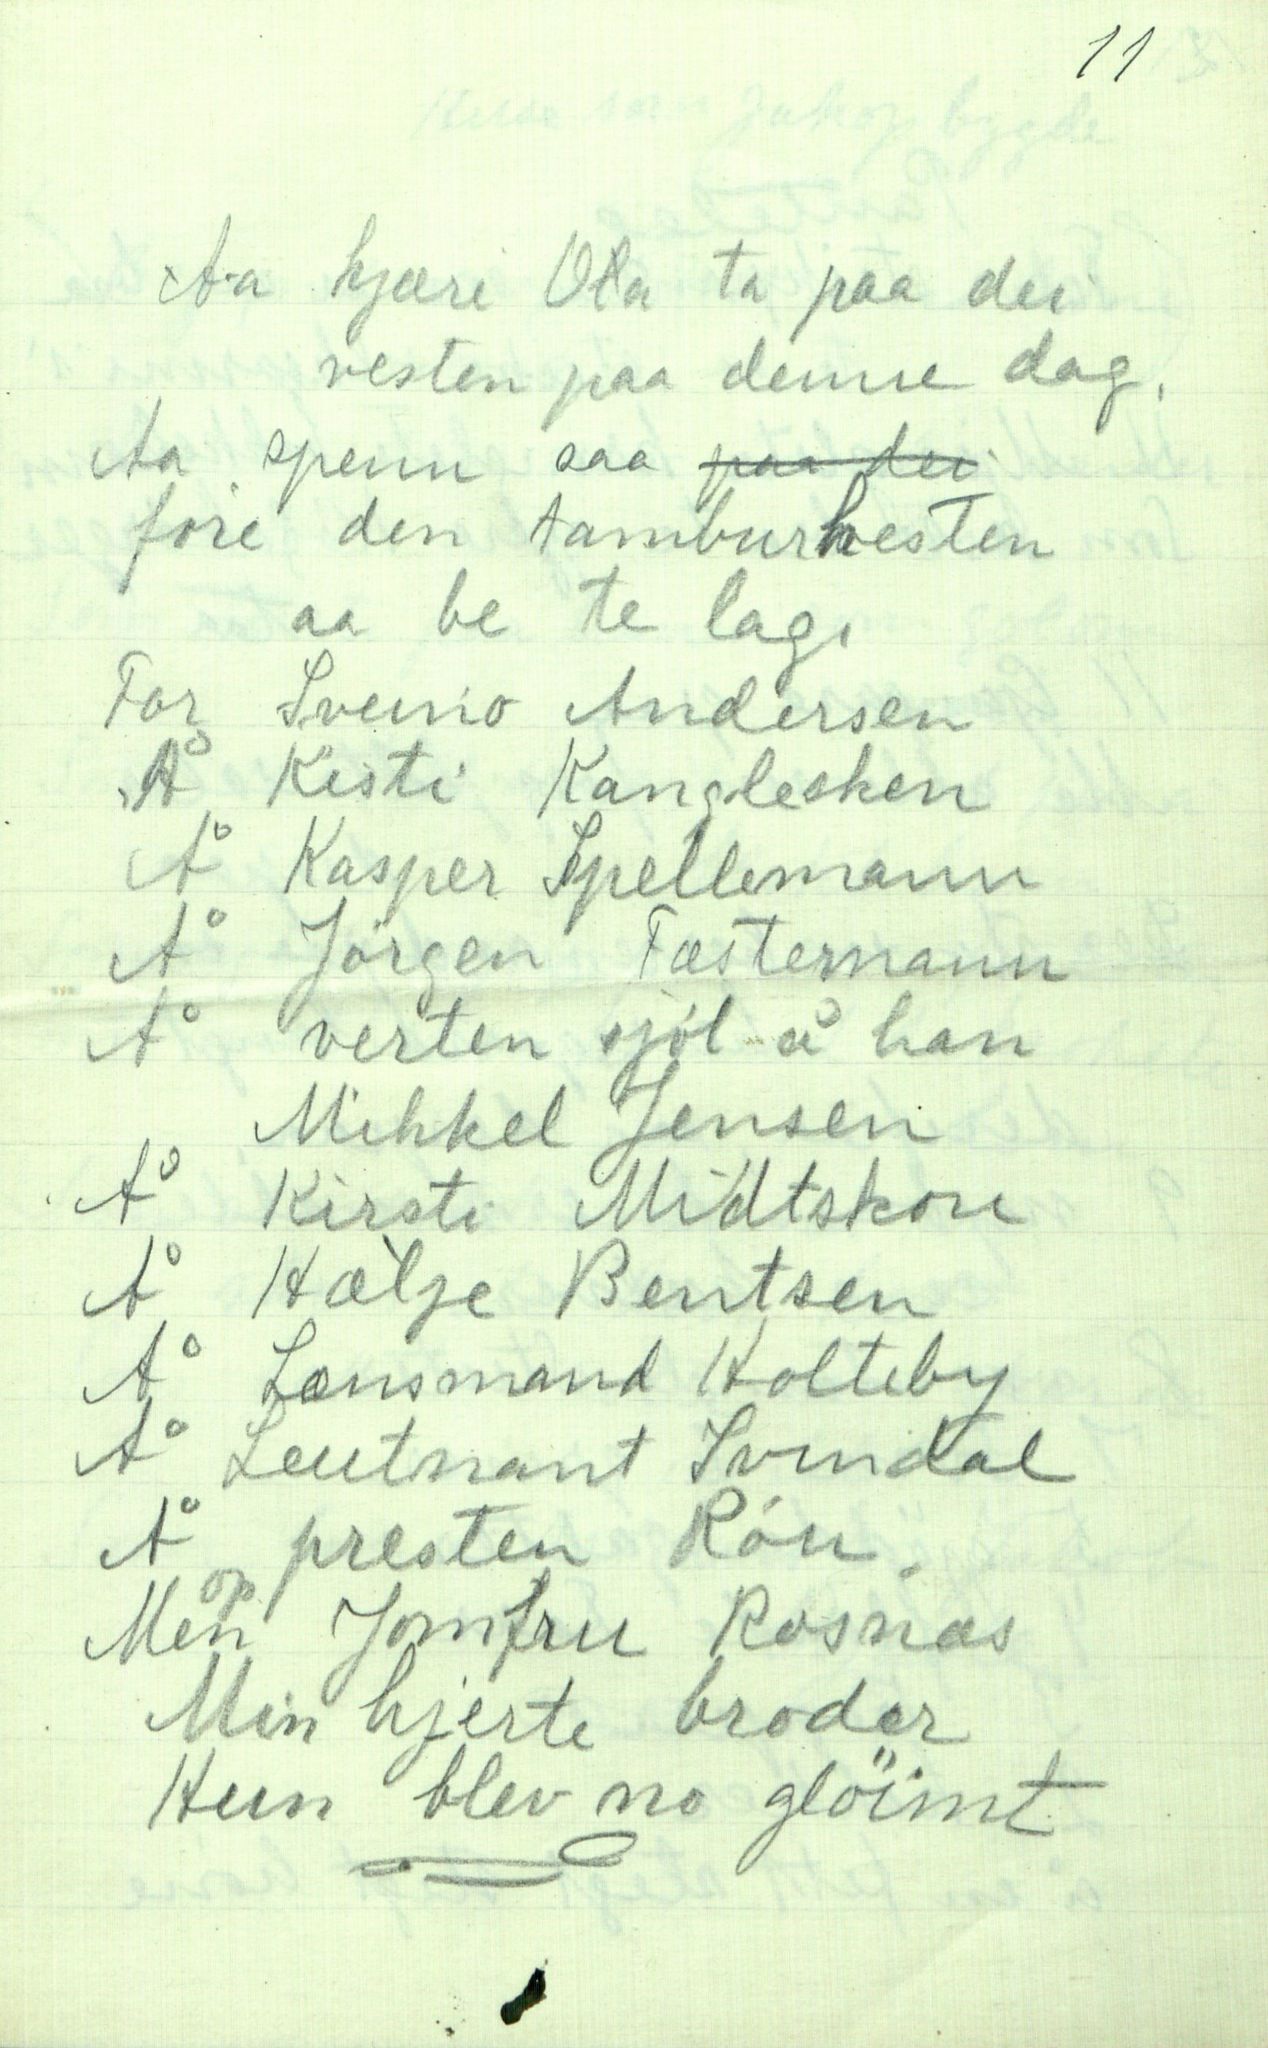 11
Aa kjære Ola ta paa dei
vesten paa denne dag.
Aa spenn saa paa dei
fore den tamburhesten
aa be te lag,
Far Sveino Andersen
Å Kisti Kanglesken
Å Kasper Spellemann
Å Jörgen Tæstermann
Å verten sjöl å han
Mihkel Jensen
Å Kirsti Midtskou
Å Hælje Bentsen
Å Lænsmand Holteby
Å Leutnant Svindal
Å presten Röu.
op
Men Jomfru Rosnæs
Min hjerte broder
Hun blev no glöimt